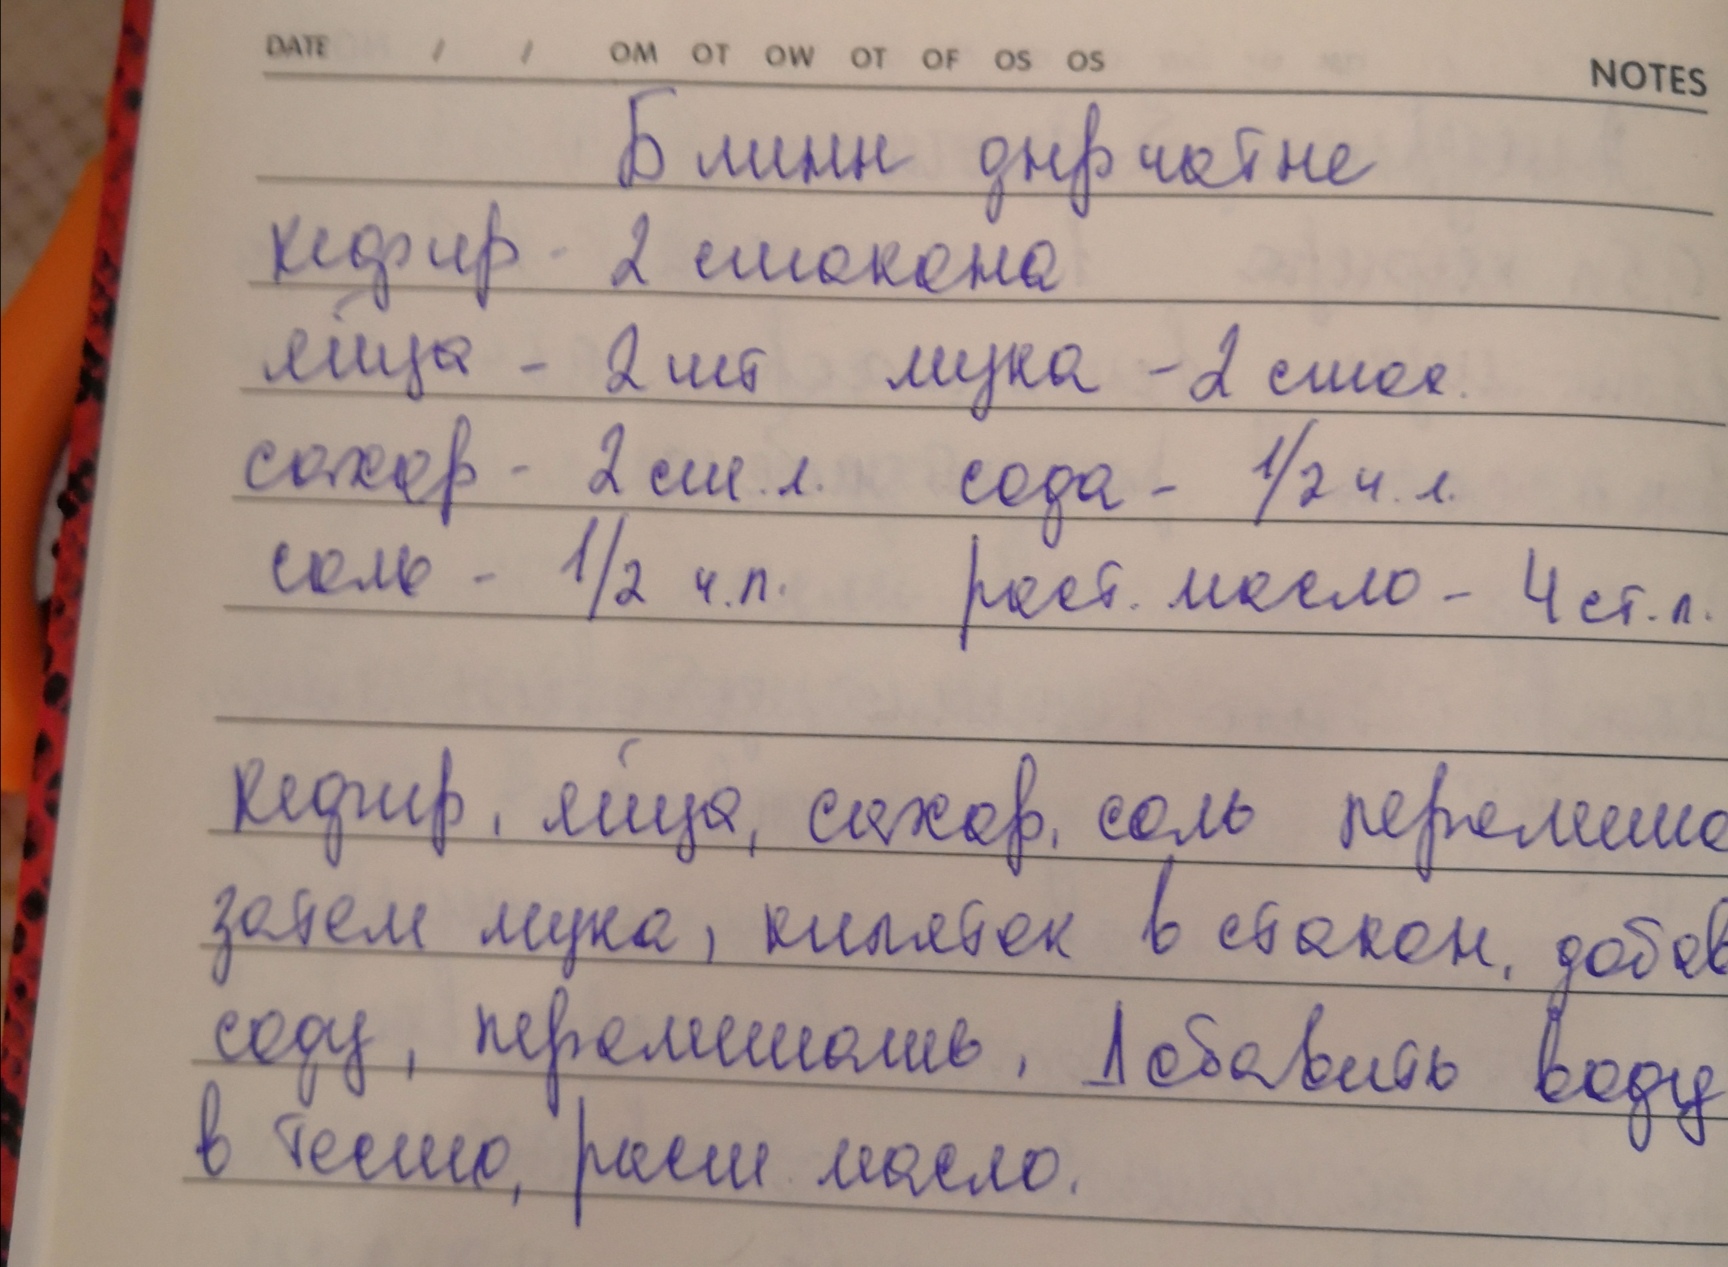 DATE / / OM OT OW OT OF OS OS NOTES
Блины дырчатые
кефир - 2 стакана
яйца - 2 шт мука - 2 стак.
сахар - 2 ст. л. сода - 1/2 ч. л.
соль - 1/2 ч.л. раст. масло - 4 ст. л.
кефир, яйца, сахар, соль перемеша
затем мука, кипяток в стакан, добав
соду, перемешать. Добавить воду
в тесто, раст масло.